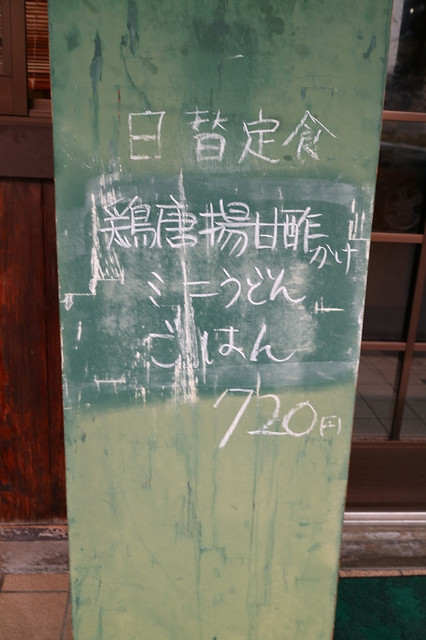 日替定食
鶏唐揚甘酢かけ
ミニうどん
ごはん
720円